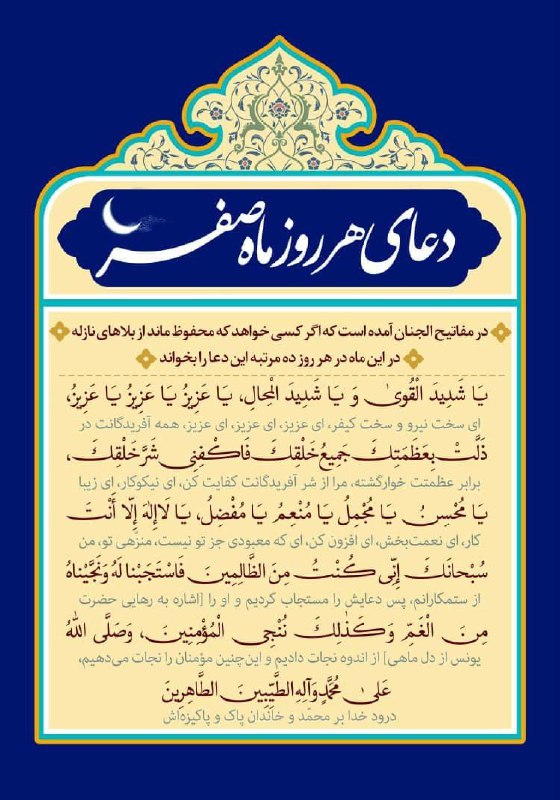 دعای هر روز ماه صفر
در مفاتیح الجنان آمده است که اگر کسی خواهد که محفوظ ماند از بلاهای نازله
در این ماه در هر روز ده مرتبه این دعا را بخواند
يَا شَدِيدَ الْقُوىٰ وَ يَا شَدِيدَ الْمِحالِ، يَا عَزِيزُ يَا عَزِيزُ يَا عَزِيزُ،
ای سخت نیرو و سخت کیفر، ای عزیز، ای عزیز، ای عزیز، همه آفریدگانت در
ذَلَّتْ بِعَظَمَتِكَ جَمِيعُ خَلْقِكَ فَاكْفِنِى شَرَّ خَلْقِكَ،
برابر عظمتت خوارگشته، مرا از شر آفریدگانت کفایت کن، ای نیکوکار، ای زیبا
يَا مُحْسِنُ يَا مُجْمِلُ يَا مُنْعِمُ يَا مُفْضِلُ، يَا لاإِلهَ إِلّا أَنْتَ
کار، ای نعمت‌بخش، ای افزون کن، ای که معبودی جز تو نیست، منزّهی تو، من
سُبْحانَكَ إِنِّى كُنْتُ مِنَ الظَّالِمِينَ فَاسْتَجَبْنا لَهُ وَنَجَّيْناهُ
از ستمکارانم، پس دعایش را مستجاب کردیم و او را [اشاره به رهایی حضرت
مِنَ الْغَمِّ وَكَذٰلِكَ نُنْجِى الْمُؤْمِنِينَ، وَصَلَّى اللّٰهُ
یونس از دل ماهی] از اندوه نجات دادیم و این‌چنین مؤمنان را نجات می‌دهیم،
عَلىٰ مُحَمَّدٍ وَآلِهِ الطَّيِّبِينَ الطَّاهِرِينَ
درود خدا بر محمّد و خاندان پاک و پاکیزه‌اش